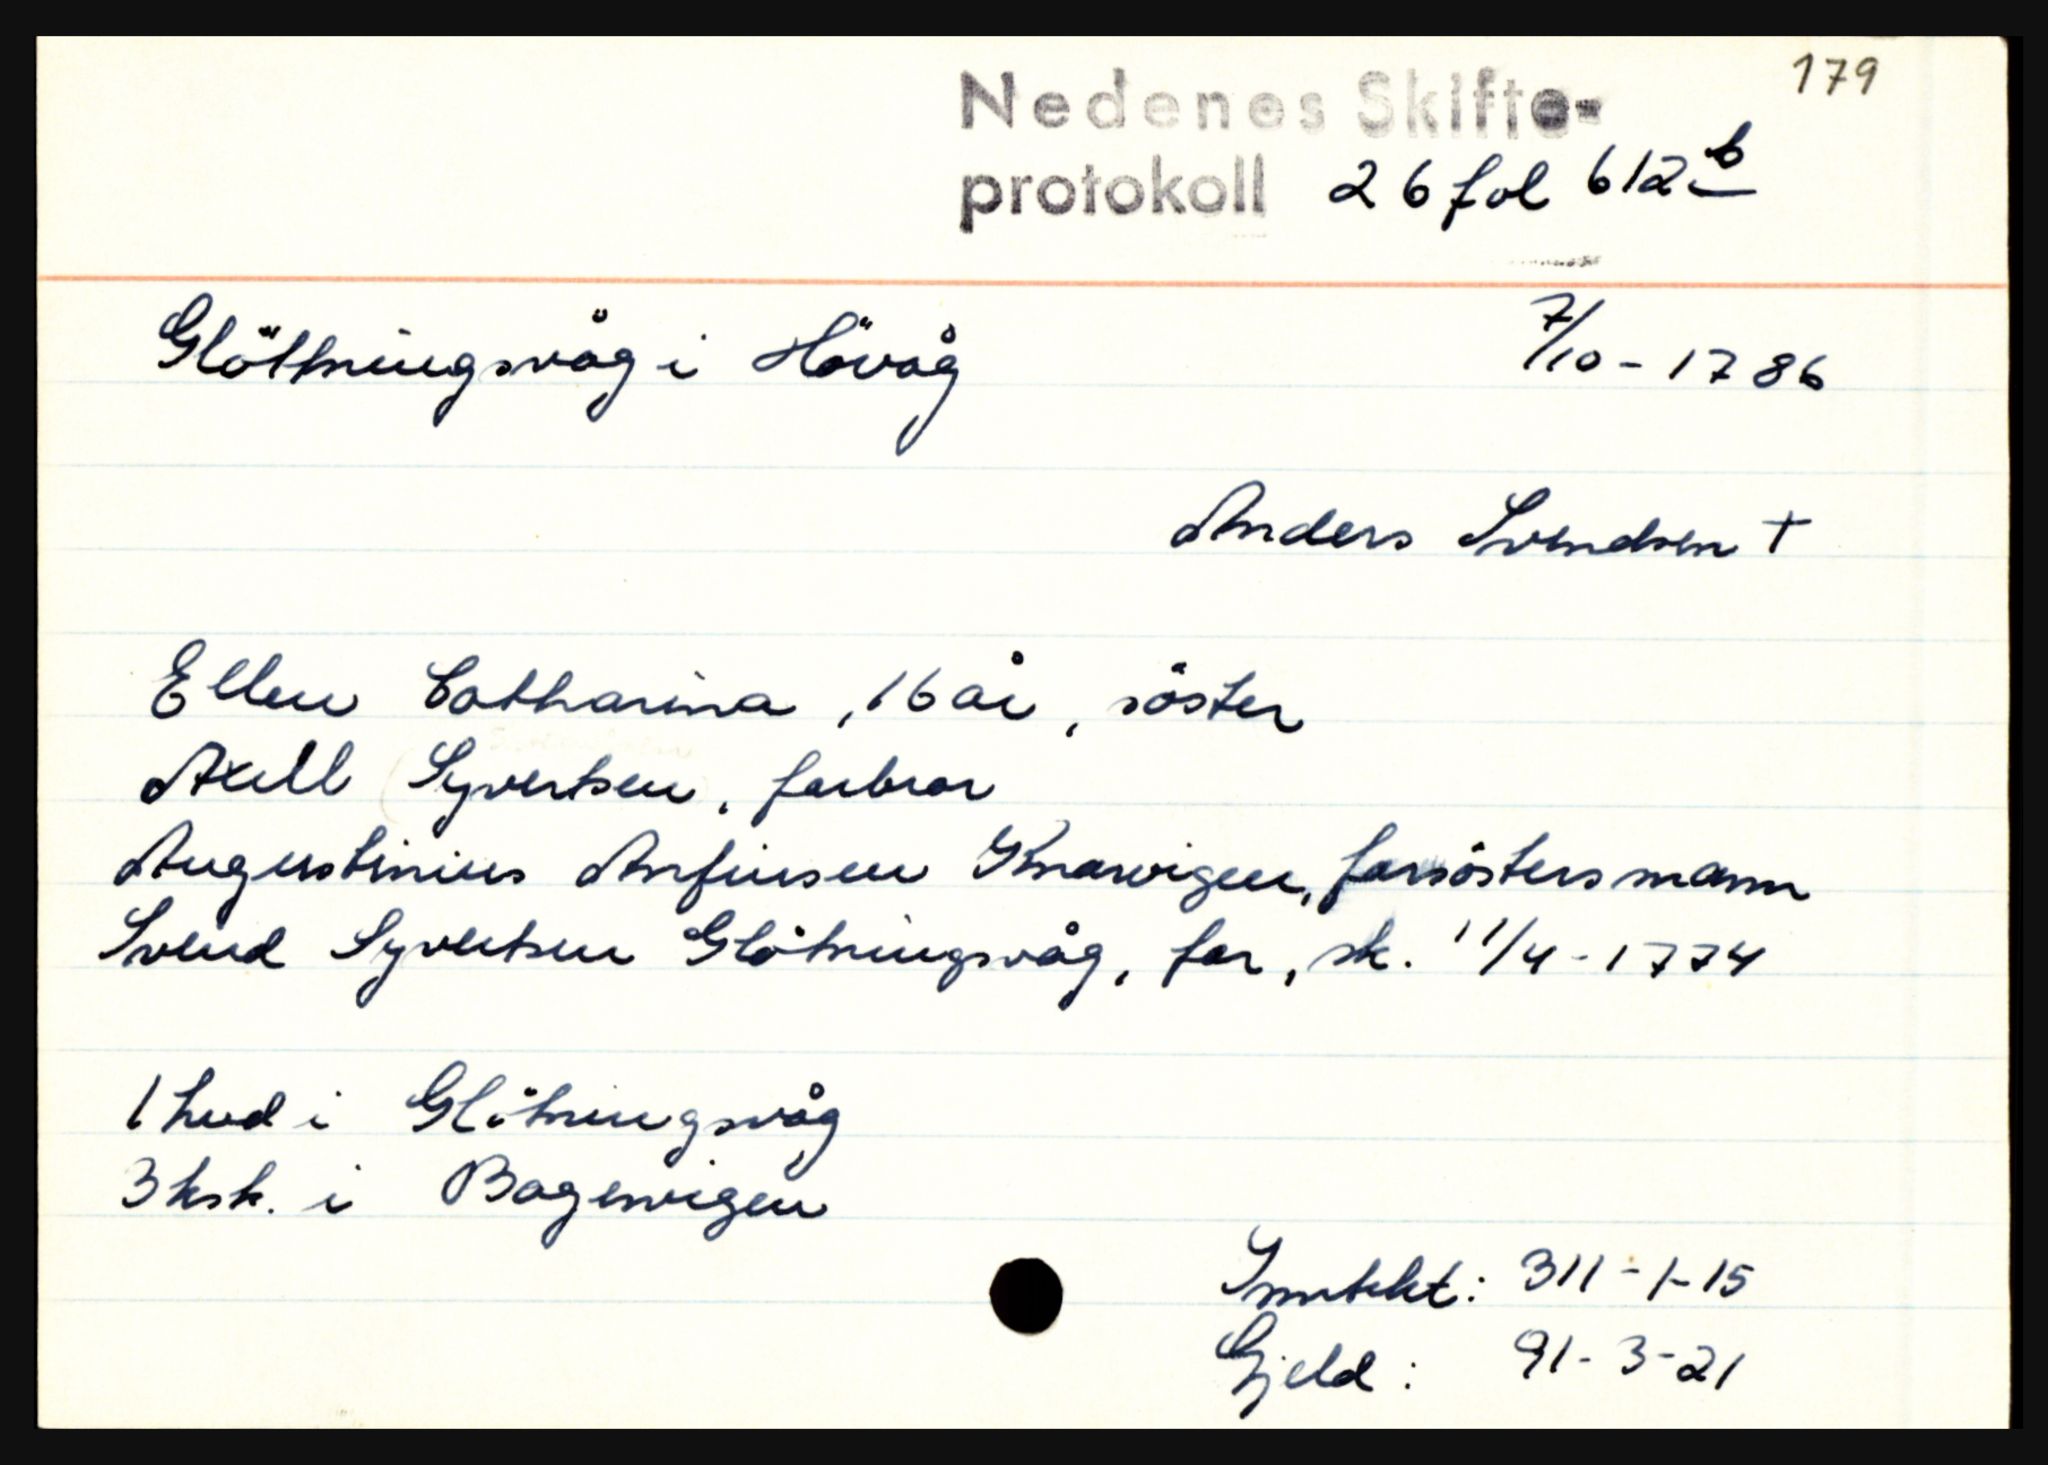 179
Nedenes Skifte-
protokoll 26 fol 612b
Glöttningsvåg i Hövåg 7/10-1786
Anders Svendsen +
Ellen Catharina, 16 år, söster
Axell Syvertsen, farbror
Augustinius Anfinsen Knarvigen, farsösters mann
Svend Syvertsen Glötningsvåg, far, sk. 11/4-1774
1 hud i Glötningsvåg
3 ksk. i Bagenvigen
Inntekt: 311-1-15
Gjeld: 91-3-21